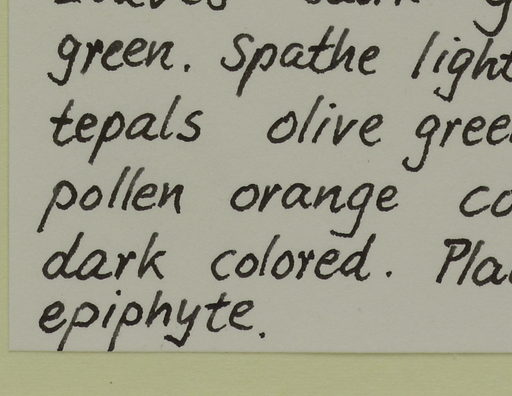 green. Spathe light
tepals olive gree
pollen orange co
dark colored. Pla
epiphyte.